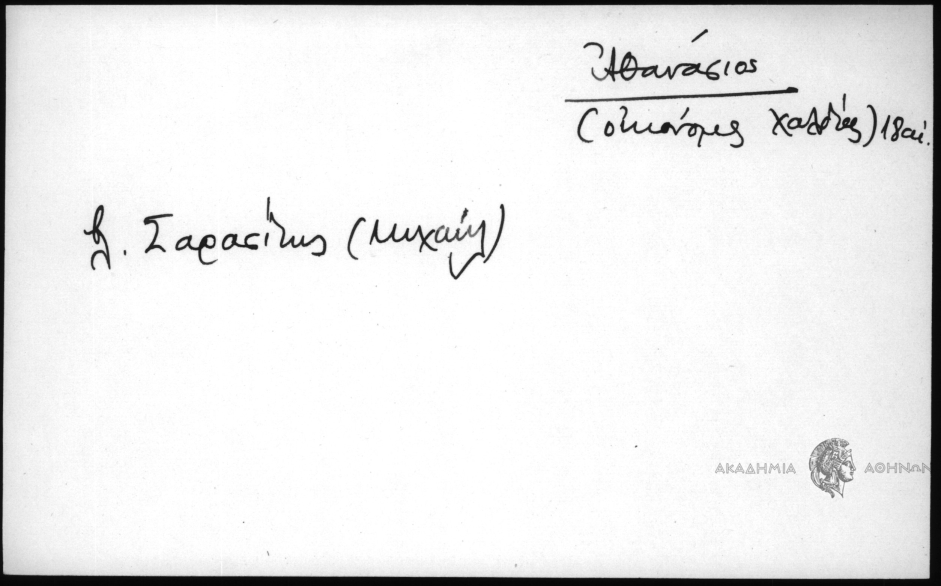 Ἀθανάσιος
(οἰκονόμος Χαλδίας) 18 αἰ.
βλ. Σαρασίτης (Μιχαήλ)
ΑΚΑΔΗΜΙΑ ΑΘΗΝΩΝ